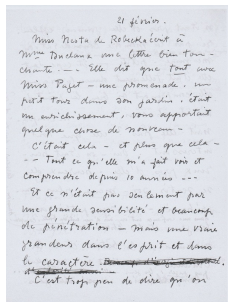 21 février.
Miss Nesta de Robeck écrit à
Mme Duclaux une lettre bien tou-
chante --- Elle dit que tout avec
Miss Paget - une promenade, un
petit tour dans son jardin, était
un enrichissement, vous apportait
quelque chose de nouveau -
C'était cela - et plus que cela -
-- Tout ce qu'elle m'a fait voir et
comprendre depuis 10 années ---
Et ce n'était pas seulement par
une grande sensibilité et beaucoup
de pénétration - mais une vraie
grandeur dans l'esprit et dans
le caractère
C'est trop peu de dire qu'on